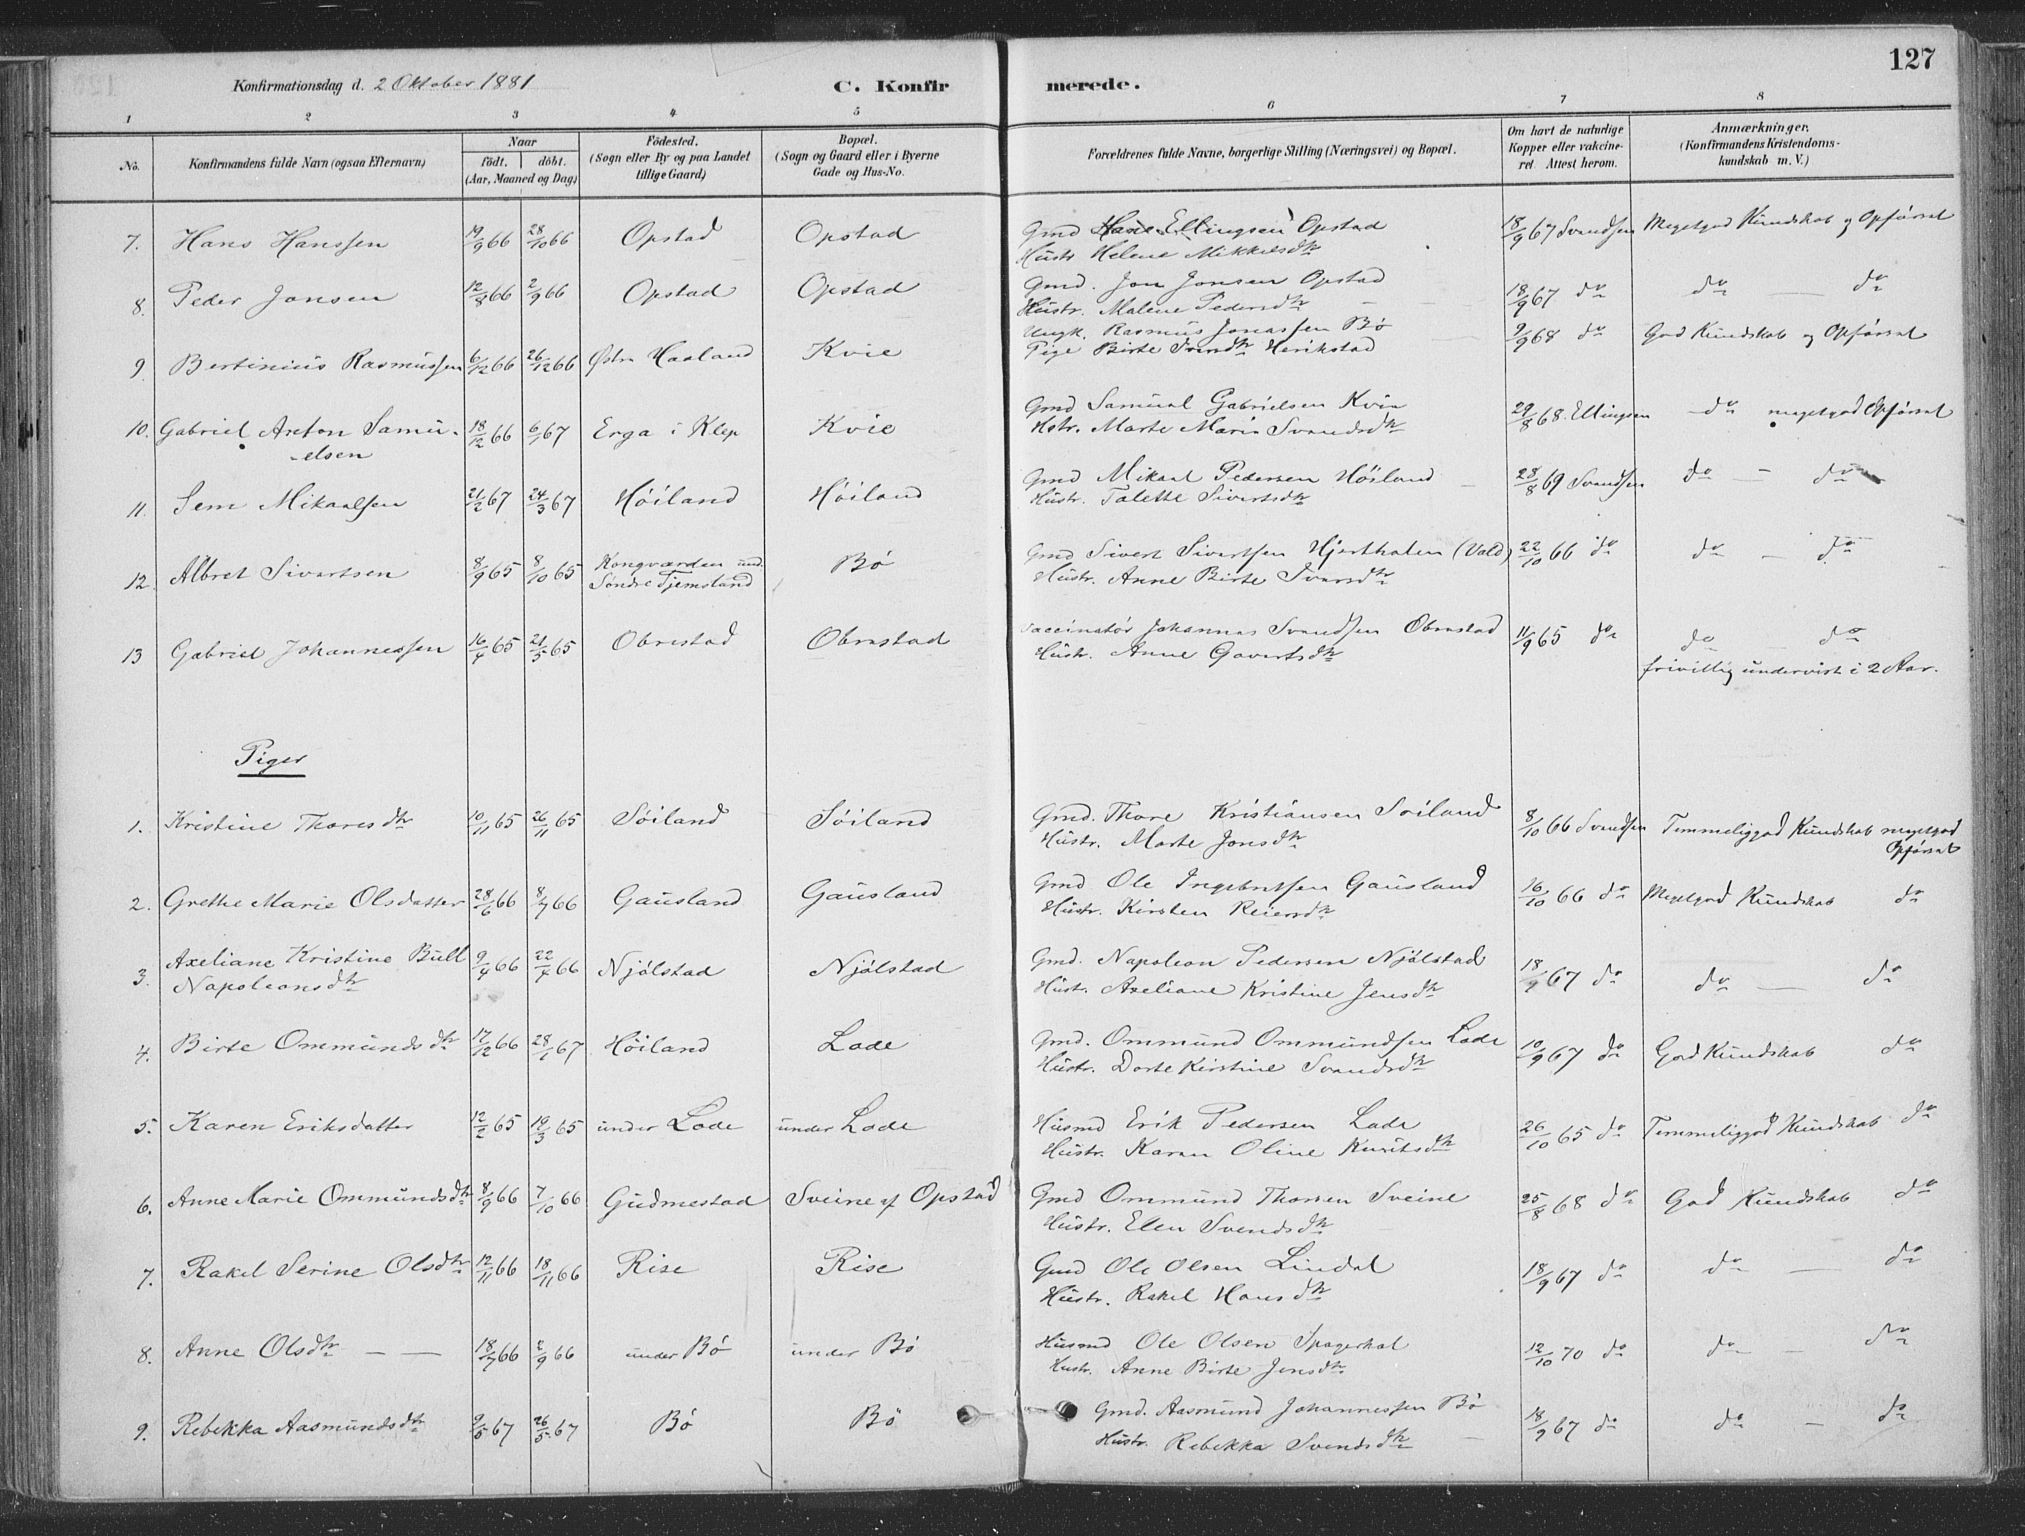 127
Konfirmationsdag d. 2 Oktober 1881 C. Konfir merede.
1 2 3 4 5 6 7 8
No. Konfirmandens fulde Navn (ogsaa Efternavn) Naar født. døbt. (Aar, Maaned og Dag) Fødested. (Sogn eller By og paa Landet tillige Gaard) Bopæl. (Sogn og Gaard eller i Byerne Gade og Hus-No. Forældrenes fulde Navne, borgerlige Stilling (Næringsvei) og Bopæl. Om havt de naturlige Kopper eller vakcineret. Attest herom. Anmærkninger. (Konfirmandens Kristendomskundskab m. V.)
7. Hans Hanssen 19/9 66 28/10 66 Opstad Opstad Gmd Hans Ellingsen Opstad 18/9 67 Svendsen Megetgod Kundskab og Opførsel
Hustr Helene Mikkelsdtr
8. Peder Jonsen 12/8 66 2/9 66 Opstad Opstad Gmd. Jon Jonsen Opstad 18/9 67 do do — do
Hustr. Malene Pedersdtr
9 Bertinius Rasmussen 6/12 66 26/12 66 Østre Haaland Kvie Ungk. Rasmus Jonassen Bø 9/9 68 do God Kundskab og Opførsel
Pige Birte Iversdtr Herikstad
10. Gabriel Anton Samu- 18/12 66 6/1 67 Erga i Klep Kvie Gmd Samuel Gabrielsen Kvie 29/8 68. Ellingsen do megetgod Opførsel
-elsen Hstr. Marte Marie Svendsdtr
11. Sem Mikaelsen 21/2 67 24/3 67 Høiland Høiland Gmd Mikael Pedersen Høiland 28/8 69 Svendsen do — do
Hustr. Talette Sivertsdtr
12 Albret Sivertsen 8/9 65 8/10 65 Kongvarden und. Søndre Tjemsland Bø Gmd Sivert Sivertsen Hjerthalen (Vald) 22/10 66 do do — do
Hustr. Anne Birte Iversdtr
13 Gabriel Johannessen 16/4 65 21/5 65 Obrestad Obrestad Vaccinatør Johannes Svendsen Obrestad 11/9 65 do do — do
Hustr. Anne Govertsdtr frivillig undervist i 2 Aar.
Piger
1. Kristine Thoresdtr 10/11 65 26/11 65 Søiland Søiland Gmd. Thore Kristiansen Søiland 8/10 66 Svendsen Temmeliggod Kundskab megetgod Opførsel
Hustr. Marte Jonsdtr
2. Grethe Marie Olsdatter 28/6 66 8/7 66 Gausland Gausland Gmd Ole Ingebretsen Gausland 16/10 66 do Megetgod Kundskab do
Hustr. Kirsten Reiersdtr
3. Axeliane Kristine Bull 9/4 66 22/4 66 Njølstad Njølstad Gmd. Napoleon Pedersen Njølstad 18/9 67 do do — do
Napoleonsdtr Hustr. Axeliane Kristine Jensdtr
4. Birte Ommundsdtr 17/12 66 28/1 67 Høiland Lode Gmd. Ommund Ommundsen Lode 10/9 67 do God Kundskab do
Hustr. Dorte Kirstine Svendsdtr
5. Karen Eriksdatter 12/2 65 19/3 65 under Lode under Lode Husmd Erik Pedersen Lode 26/10 65 do Temmeliggod Kundskab do
Hustr. Karen Oline Knutsdtr
6. Anne Marie Ommundsdtr 8/9 66 7/10 66 Gudmestad Sveine af Opstad Gmd Ommund Thorsen Sveine 25/8 68 do God Kundskab do
Hustr. Elen Svendsdtr
7. Rakel Serine Olsdtr 12/11 66 18/11 66 Rise Rise Gmd Ole Olsen Lindal 18/9 67 do do — do
Hustr. Rakel Hansdtr
8. Anne Olsdtr — — 18/7 66 2/9 66 under Bø under Bø Husmd Ole Olsen Spagerhal 12/10 70 do do — do
Hustr. Anne Birte Jensdtr
9. Rebekka Aasmundsdtr 9/5 67 26/5 67 Bø Bø Gmd. Aasmund Johannessen Bø 18/9 67 do do — do
Hustr. Rebekka Svendsdtr